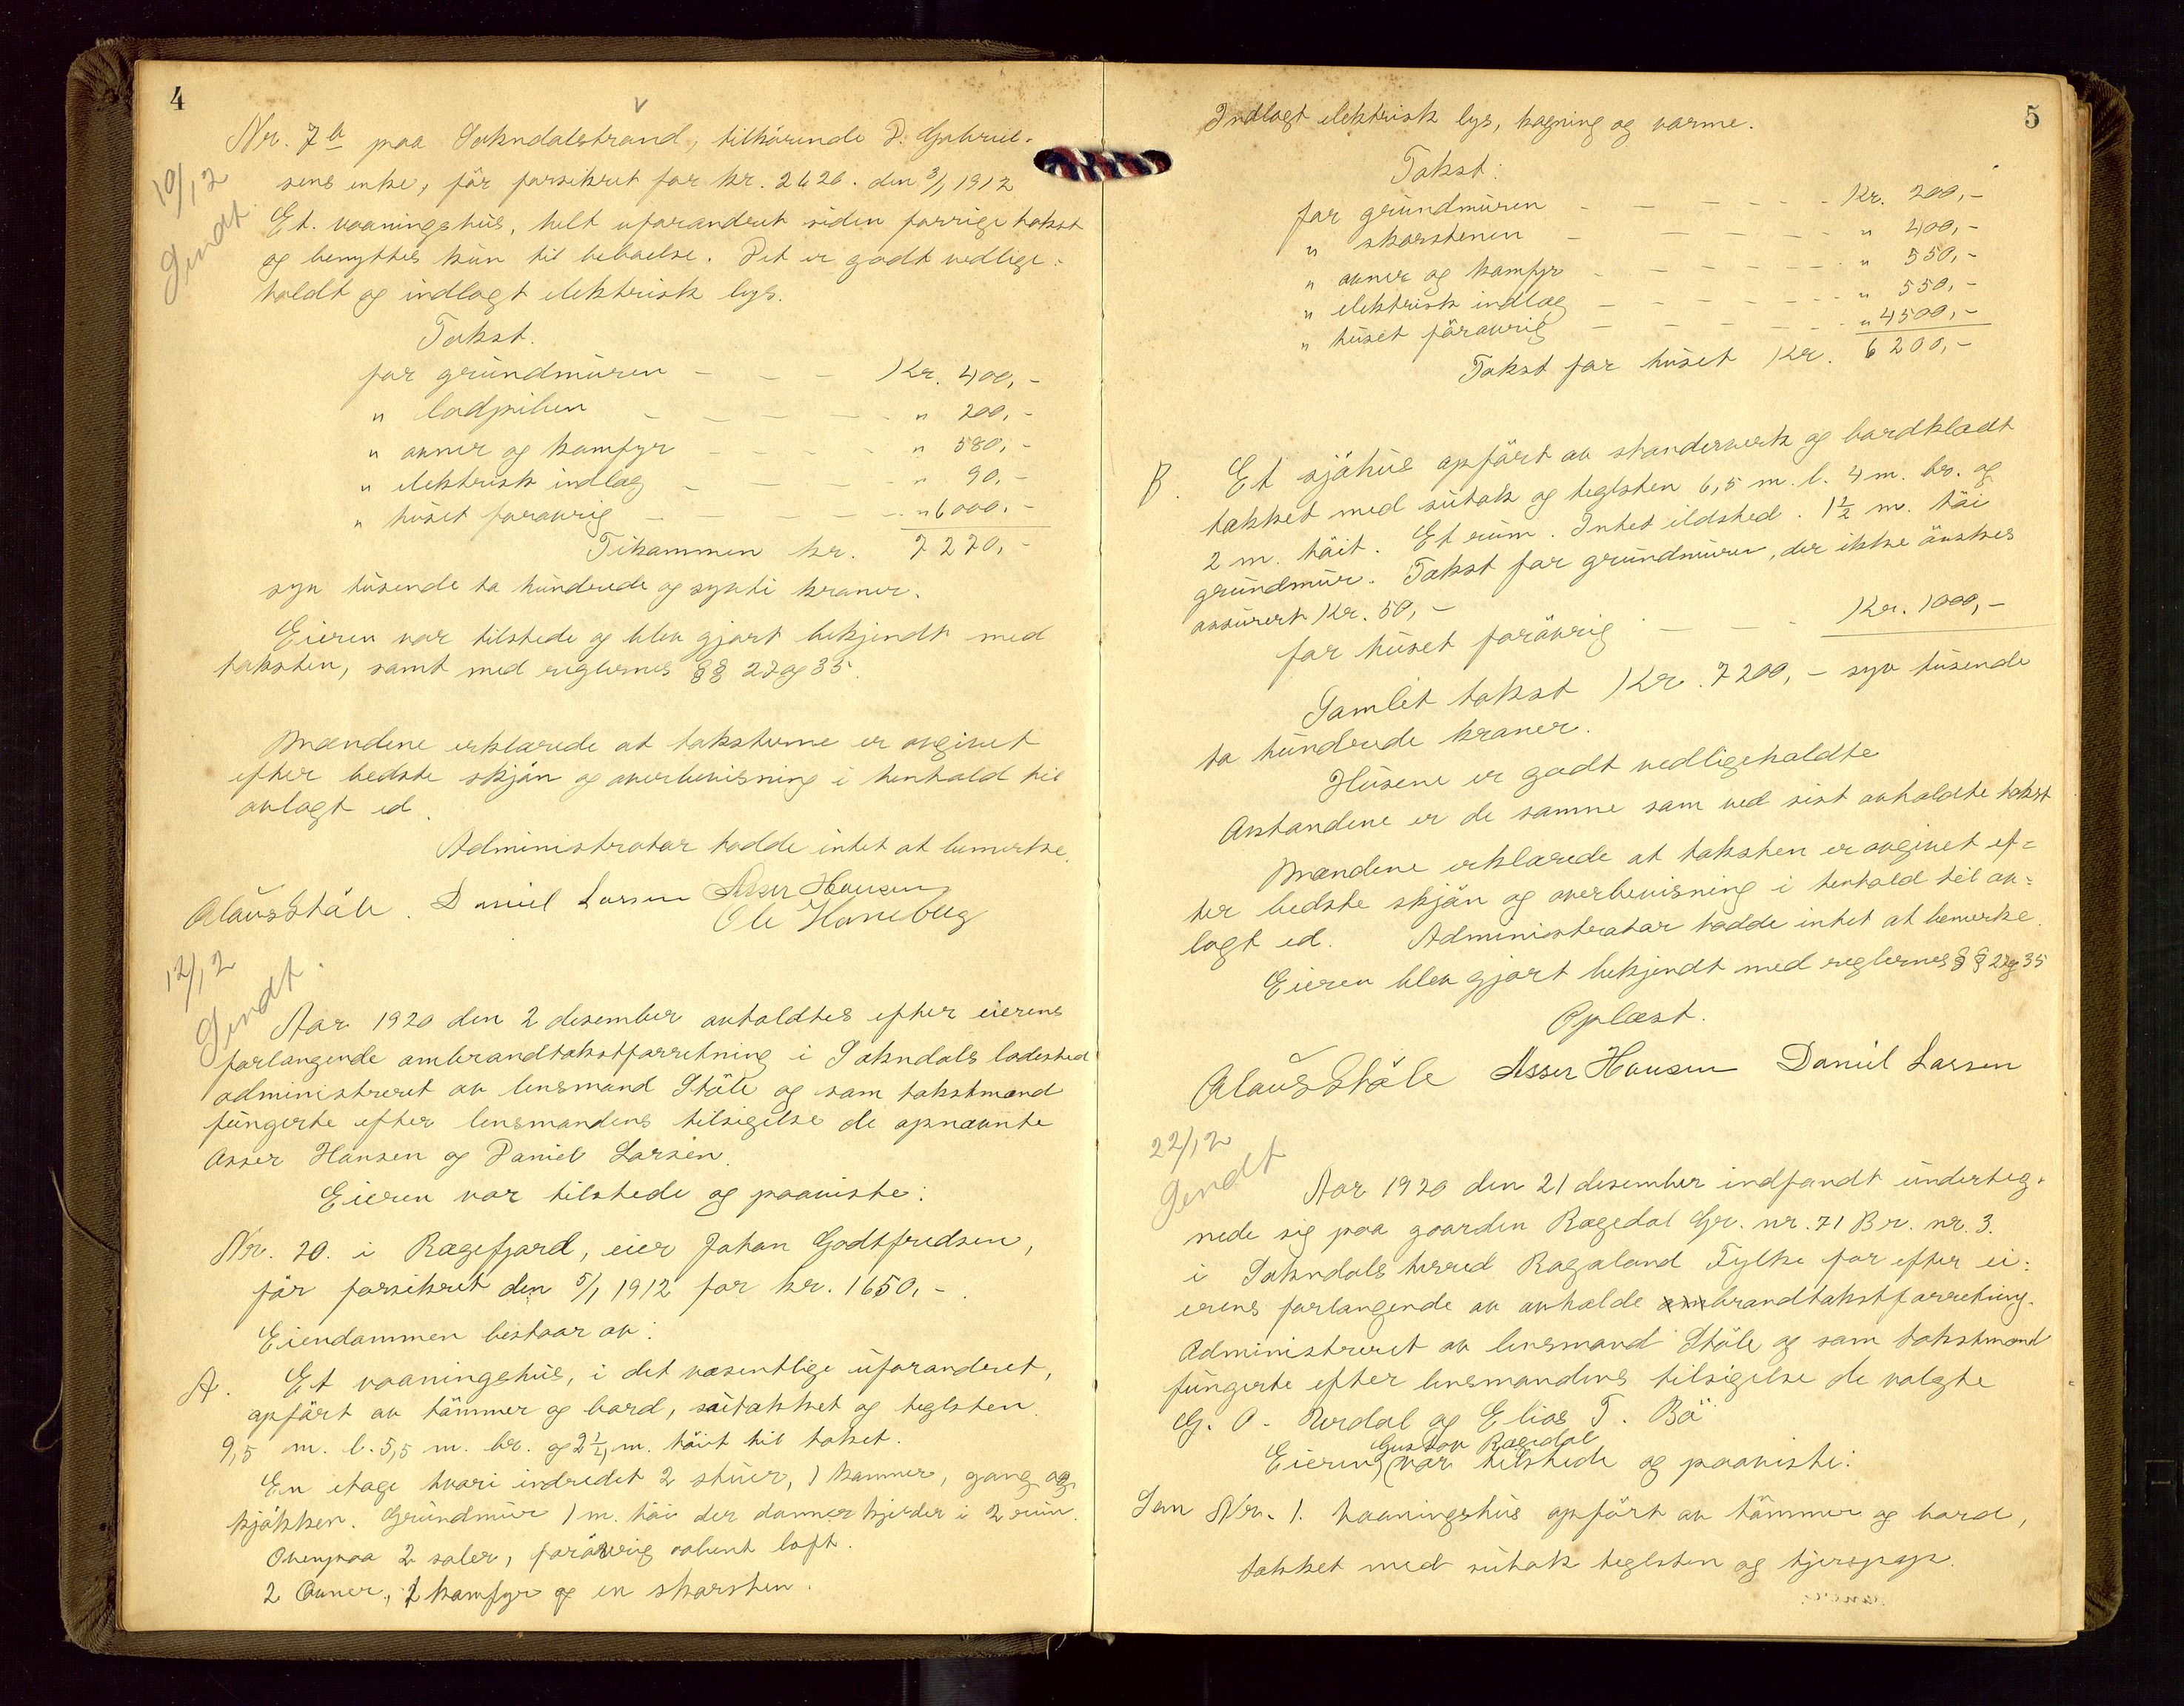 4
10/12
Sendt.
Nr. 7b paa Sokndalstrand, tilhörende P. Gabriel-
sens enke, för forsikret for kr. 2620. den 3/1 1912
Et. vaaningshus, helt uforandret siden forrige takst
og benyttes kun til beboelse. Det er godt vedlige-
holdt og indlagt elektrisk lys.
Takst.
for grundmuren - - - Kr. 400,-
" ladpiben - - - - - " 200,-
" ovner og komfyr - - - - " 580,-
" elektrisk indlæg - - - - " 90,-
" huset forøvrig - - - - - " 6000,-
Tilsammen kr. 7270,-
syv tusende to hundrede og sytti kroner.
Eieren var tilstede og blev gjort bekjendt med
taksten, samt med reglernes §§ 27 og 35.
Mændene erklærede at taksterne er avgivet
efter bedste skjön og overbevisning i henhold til
avlagt ed.
Administrator hadde intet at bemerke.
Olaus Stöle. Daniel Larsen Asser Hansen
Ole Haneberg
12/12
Sendt.
Aar 1920 den 2 desember avholdtes efter eierens
forlangende ombrandtakstforretning i Sokndals ladested
administreret av lensmand Stöle og som takstmænd
fungerte efter lensmandens tilsigelse de opnævnte
Asser Hansen og Daniel Larsen.
Eieren var tilstede og paaviste:
Nr. 20. i Rægefjord, eier Johan Godtfredsen,
för forsikret den 5/1 1912 for kr. 1650,-.
Eiendommen bestaar av:
A. Et vaaningshus, i det væsentlige uforandret,
opfört av tömmer og bord, sutækket og teglsten.
9,5 m. l. 5,5 m. br. og 2 1/4 m. höit til taket.
En etage hvori indredet 2 stuer, 1 kammer, gang og
kjökken. Grundmur 1 m. höi der danner kjelder i 2 rum.
Ovenpaa 2 saler, forövrig aabent loft.
2 Ovner, 1 komfyr og en skorsten.
5
Indlagt elektrisk lys, kogning og varme.
Takst:
for grundmuren - - - - - - Kr. 200,-
" skorstenen - - - - - " 400,-
" ovner og komfyr - - - - - " 550,-
" elektrisk indlæg - - - - - " 550,-
" huset förövrig - - - - - " 4500,-
Takst for huset Kr. 6200,-
B. Et sjöhus opfört av standerverk og bordklædt
tækket med sutak og teglsten 6,5 m. l. 4 m. br. og
2 m. höit. Et rum. Intet ildsted. 1 1/2 m. höi
grundmur. Takst for grundmuren, der ikke önskes
assurert Kr. 50,-
for huset forövrig - - - Kr. 1000,-
Samlet takst Kr. 7200,- syv tusende
to hundrede kroner.
Husene er godt vedligeholdte
Avstandene er de samme som ved sist avholdte takst
Mændene erklærede at taksten er avgivet ef-
ter bedste skjön og overbevisning i henhold til av-
lagt ed. Administrator hadde intet at bemerke.
Eieren blev gjort bekjendt med reglernes §§ 27 og 35
Oplæst.
Olaus Stöle Asser Hansen Daniel Larsen
22/12
Sendt
Aar 1920 den 21 desember indfandt underteg-
nede sig paa gaarden Rægedal Gr. nr. 71 Br. nr. 3.
i Sokndals herred Rogaland Fylke for efter ei-
erens forlangende av avholde brandtakstforretning.
Administreret av lensmand Stöle og som takstmænd
fungerte efter lensmandens tilsigelse de valgte
G. O. Urdal og Elias T. Bö
Gustav Rægedal
Eieren var tilstede og paaviste:
Som Nr. 1. Vaaningshus opfört av tömmer og bord,
tækket med sutak teglsten og tjerepap.